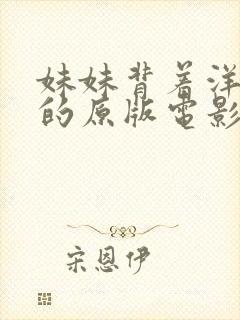 妹妹背着洋
的原版電影
宋恩伊